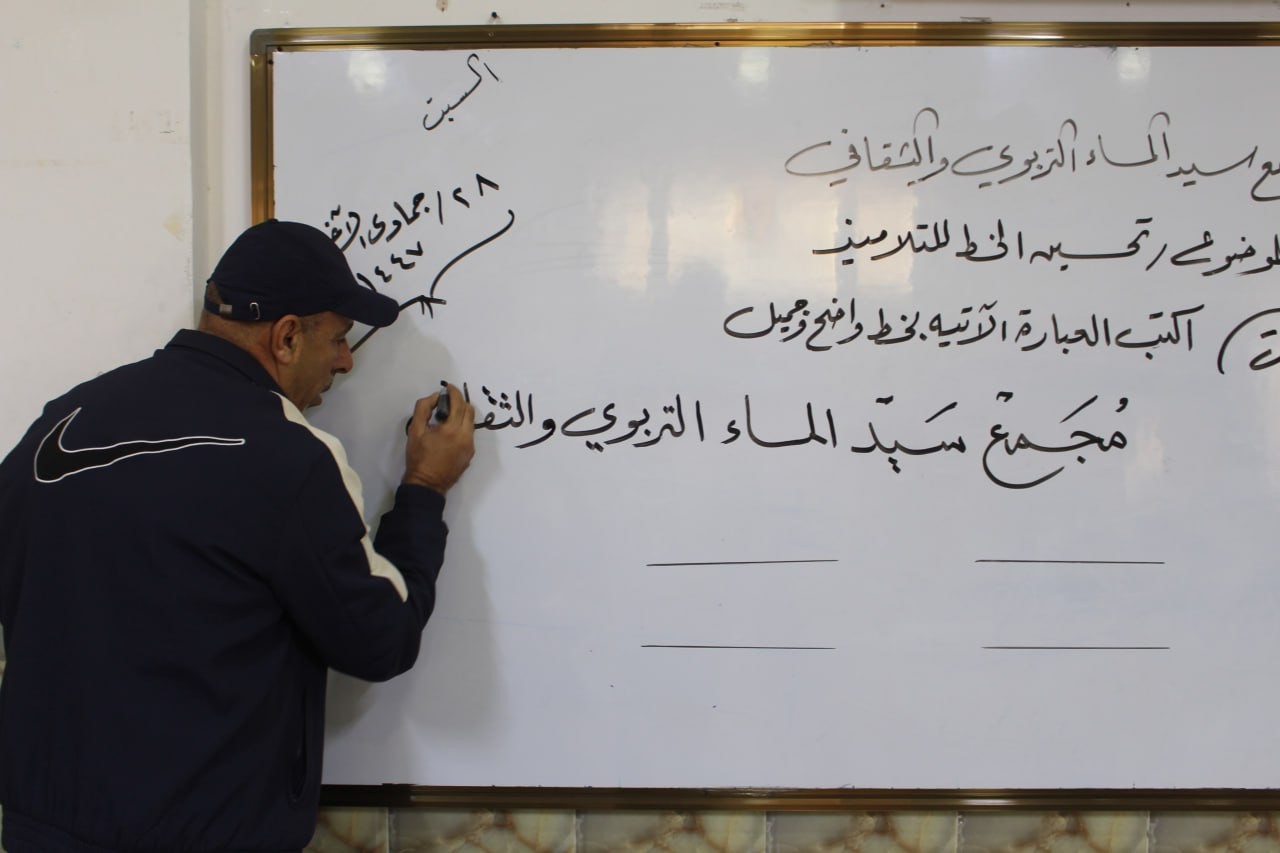 السبت
٢٨ / جمادى الآخر
١٤٤٧
سيد الماء التربوي والثقافي
الموضوع / تحسين الخط للتلاميذ
اكتب العبارة الآتيه بخط واضح وجميل
مُجَمعْ سَيّد الماء التربوي والثقا